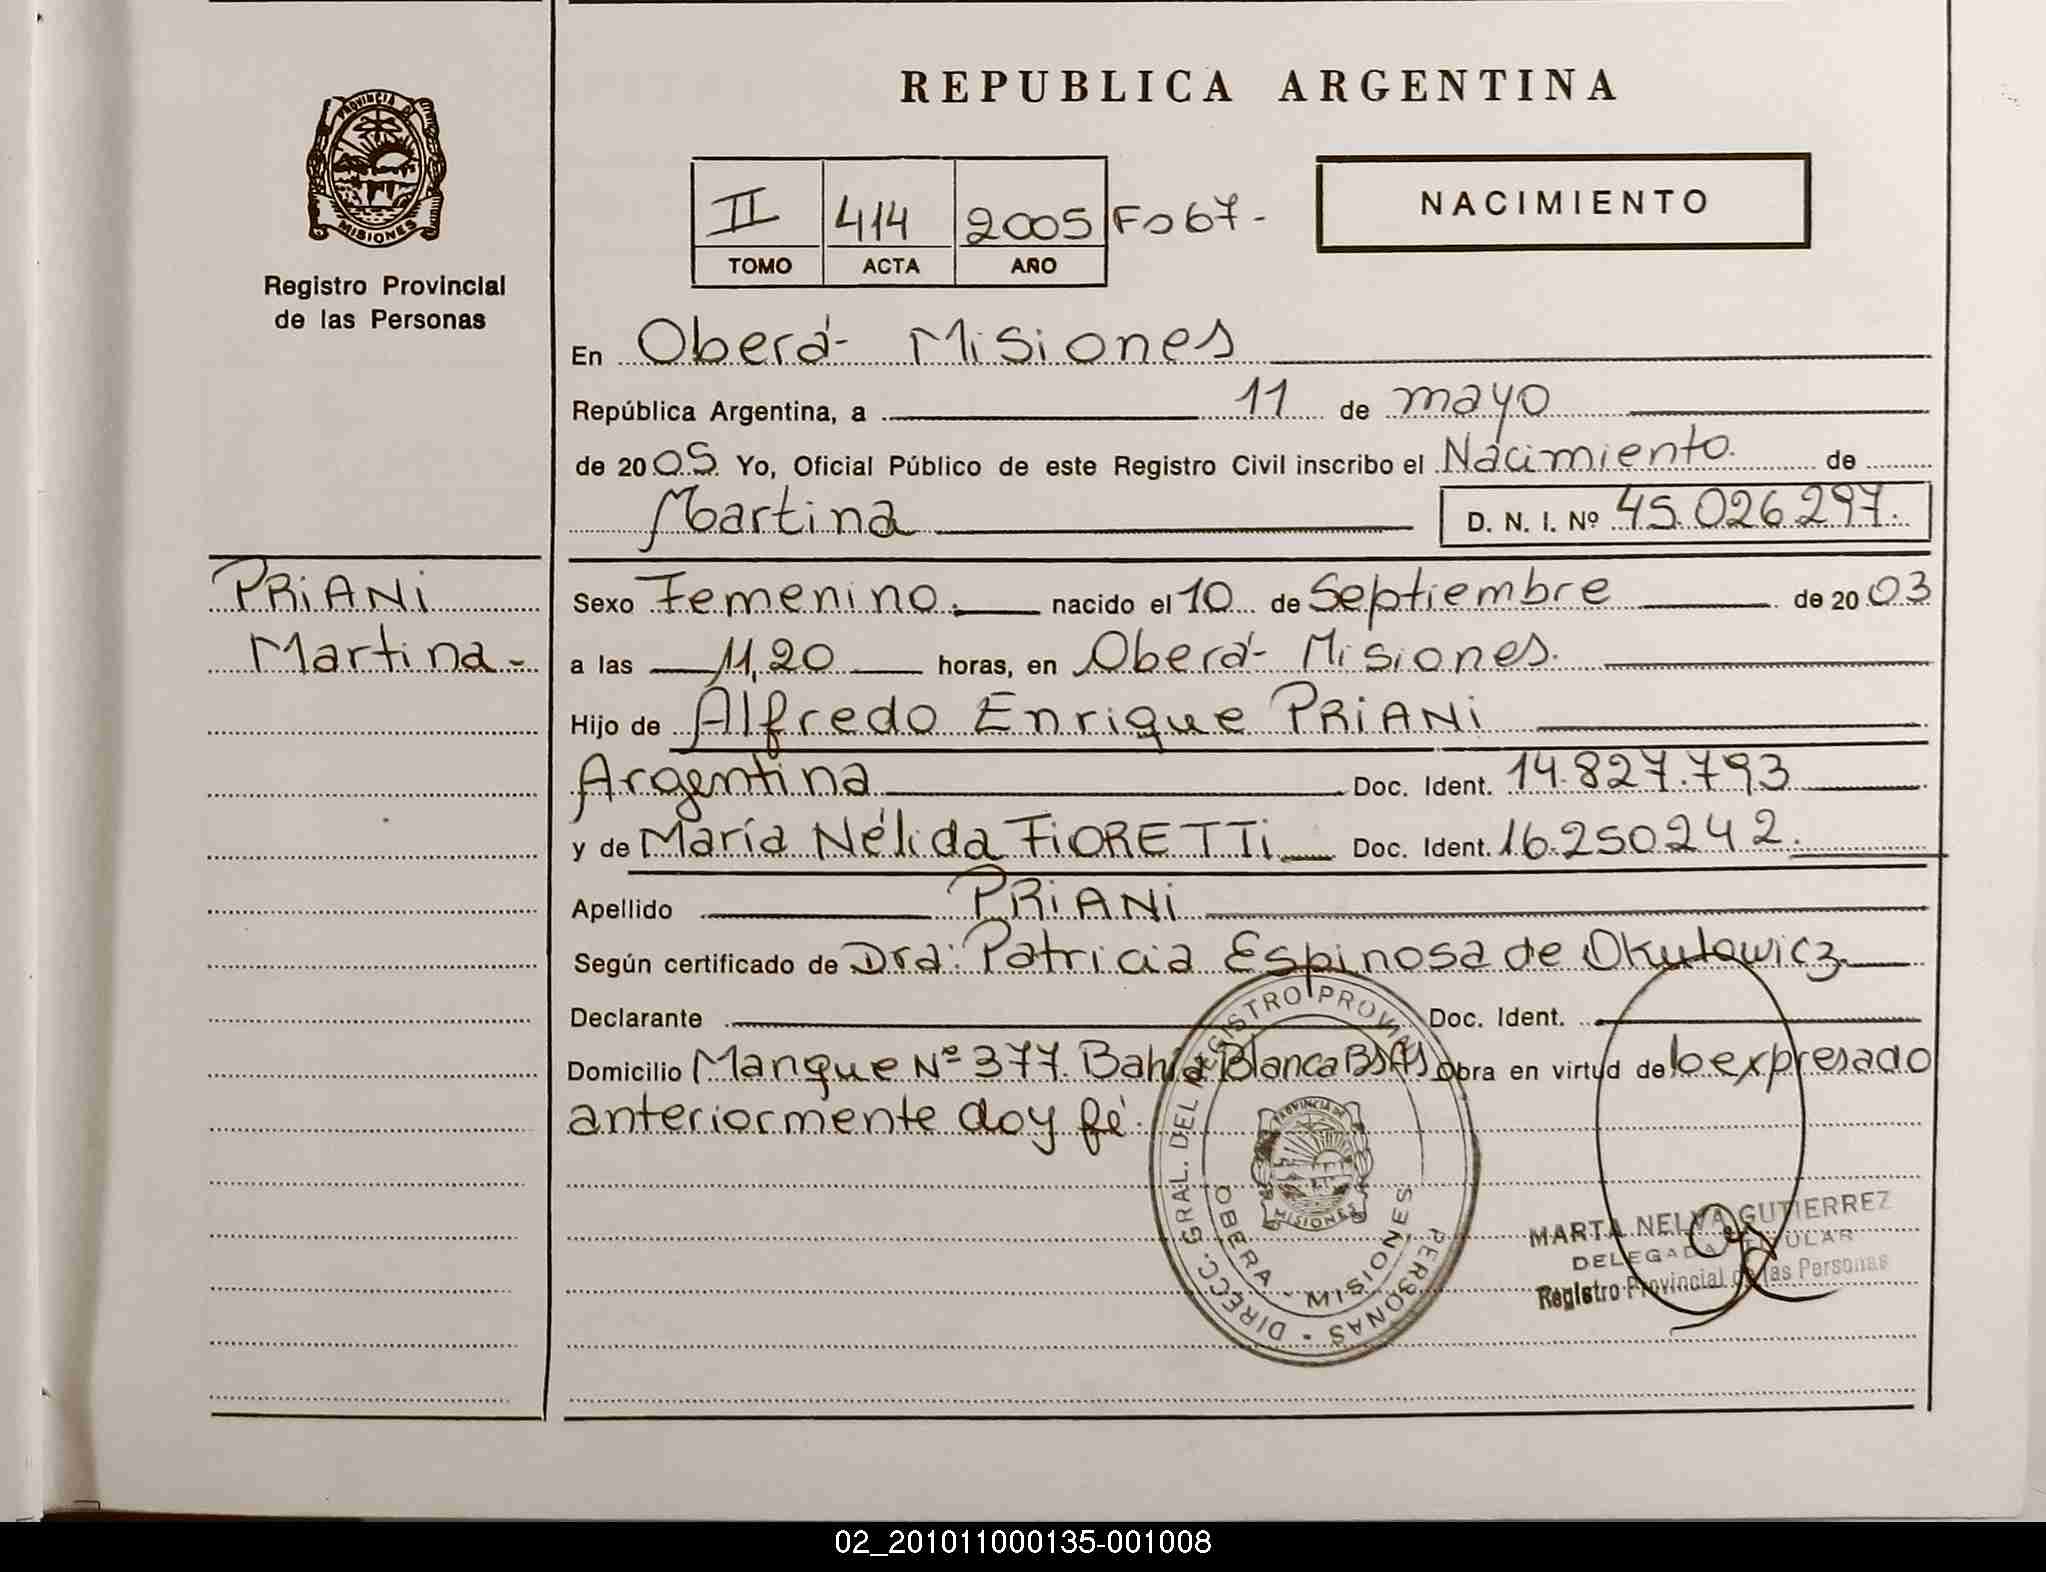 REPUBLICA ARGENTINA
PROVINCIA DE
MISIONES
Registro Provincial
de las Personas
II 414 2005 Fo 67-
TOMO ACTA AÑO
NACIMIENTO
En Oberá- Misiones
República Argentina, a 11 de mayo
de 2005. Yo, Oficial Público de este Registro Civil inscribo el Nacimiento. de
Martina D. N. I. Nº 45.026.297.
PRiANi
Martina-
Sexo Femenino. nacido el 10 de Septiembre de 2003
a las 11,20 horas, en Oberá- Misiones.
Hijo de Alfredo Enrique PRiANi
Argentina Doc. Ident. 14.827.793
y de María Nélida FiORETTi Doc. Ident. 16.250242.
Apellido PRiANi
Según certificado de Dra: Patricia Espinosa de Okulowicz
Declarante Doc. Ident.
Domicilio Manque Nº 377. Bahía Blanca BsAs Obra en virtud de lo expresado
anteriormente doy fé.
DIRECC. GRAL. DEL REGISTRO PROVIN PERSONAS
PROVINCIA DE
MISIONES
OBERA - MISIONES
MARTA NELVA GUTIERREZ
DELEGADA TITULAR
Registro Provincial de las Personas
02_201011000135-001008